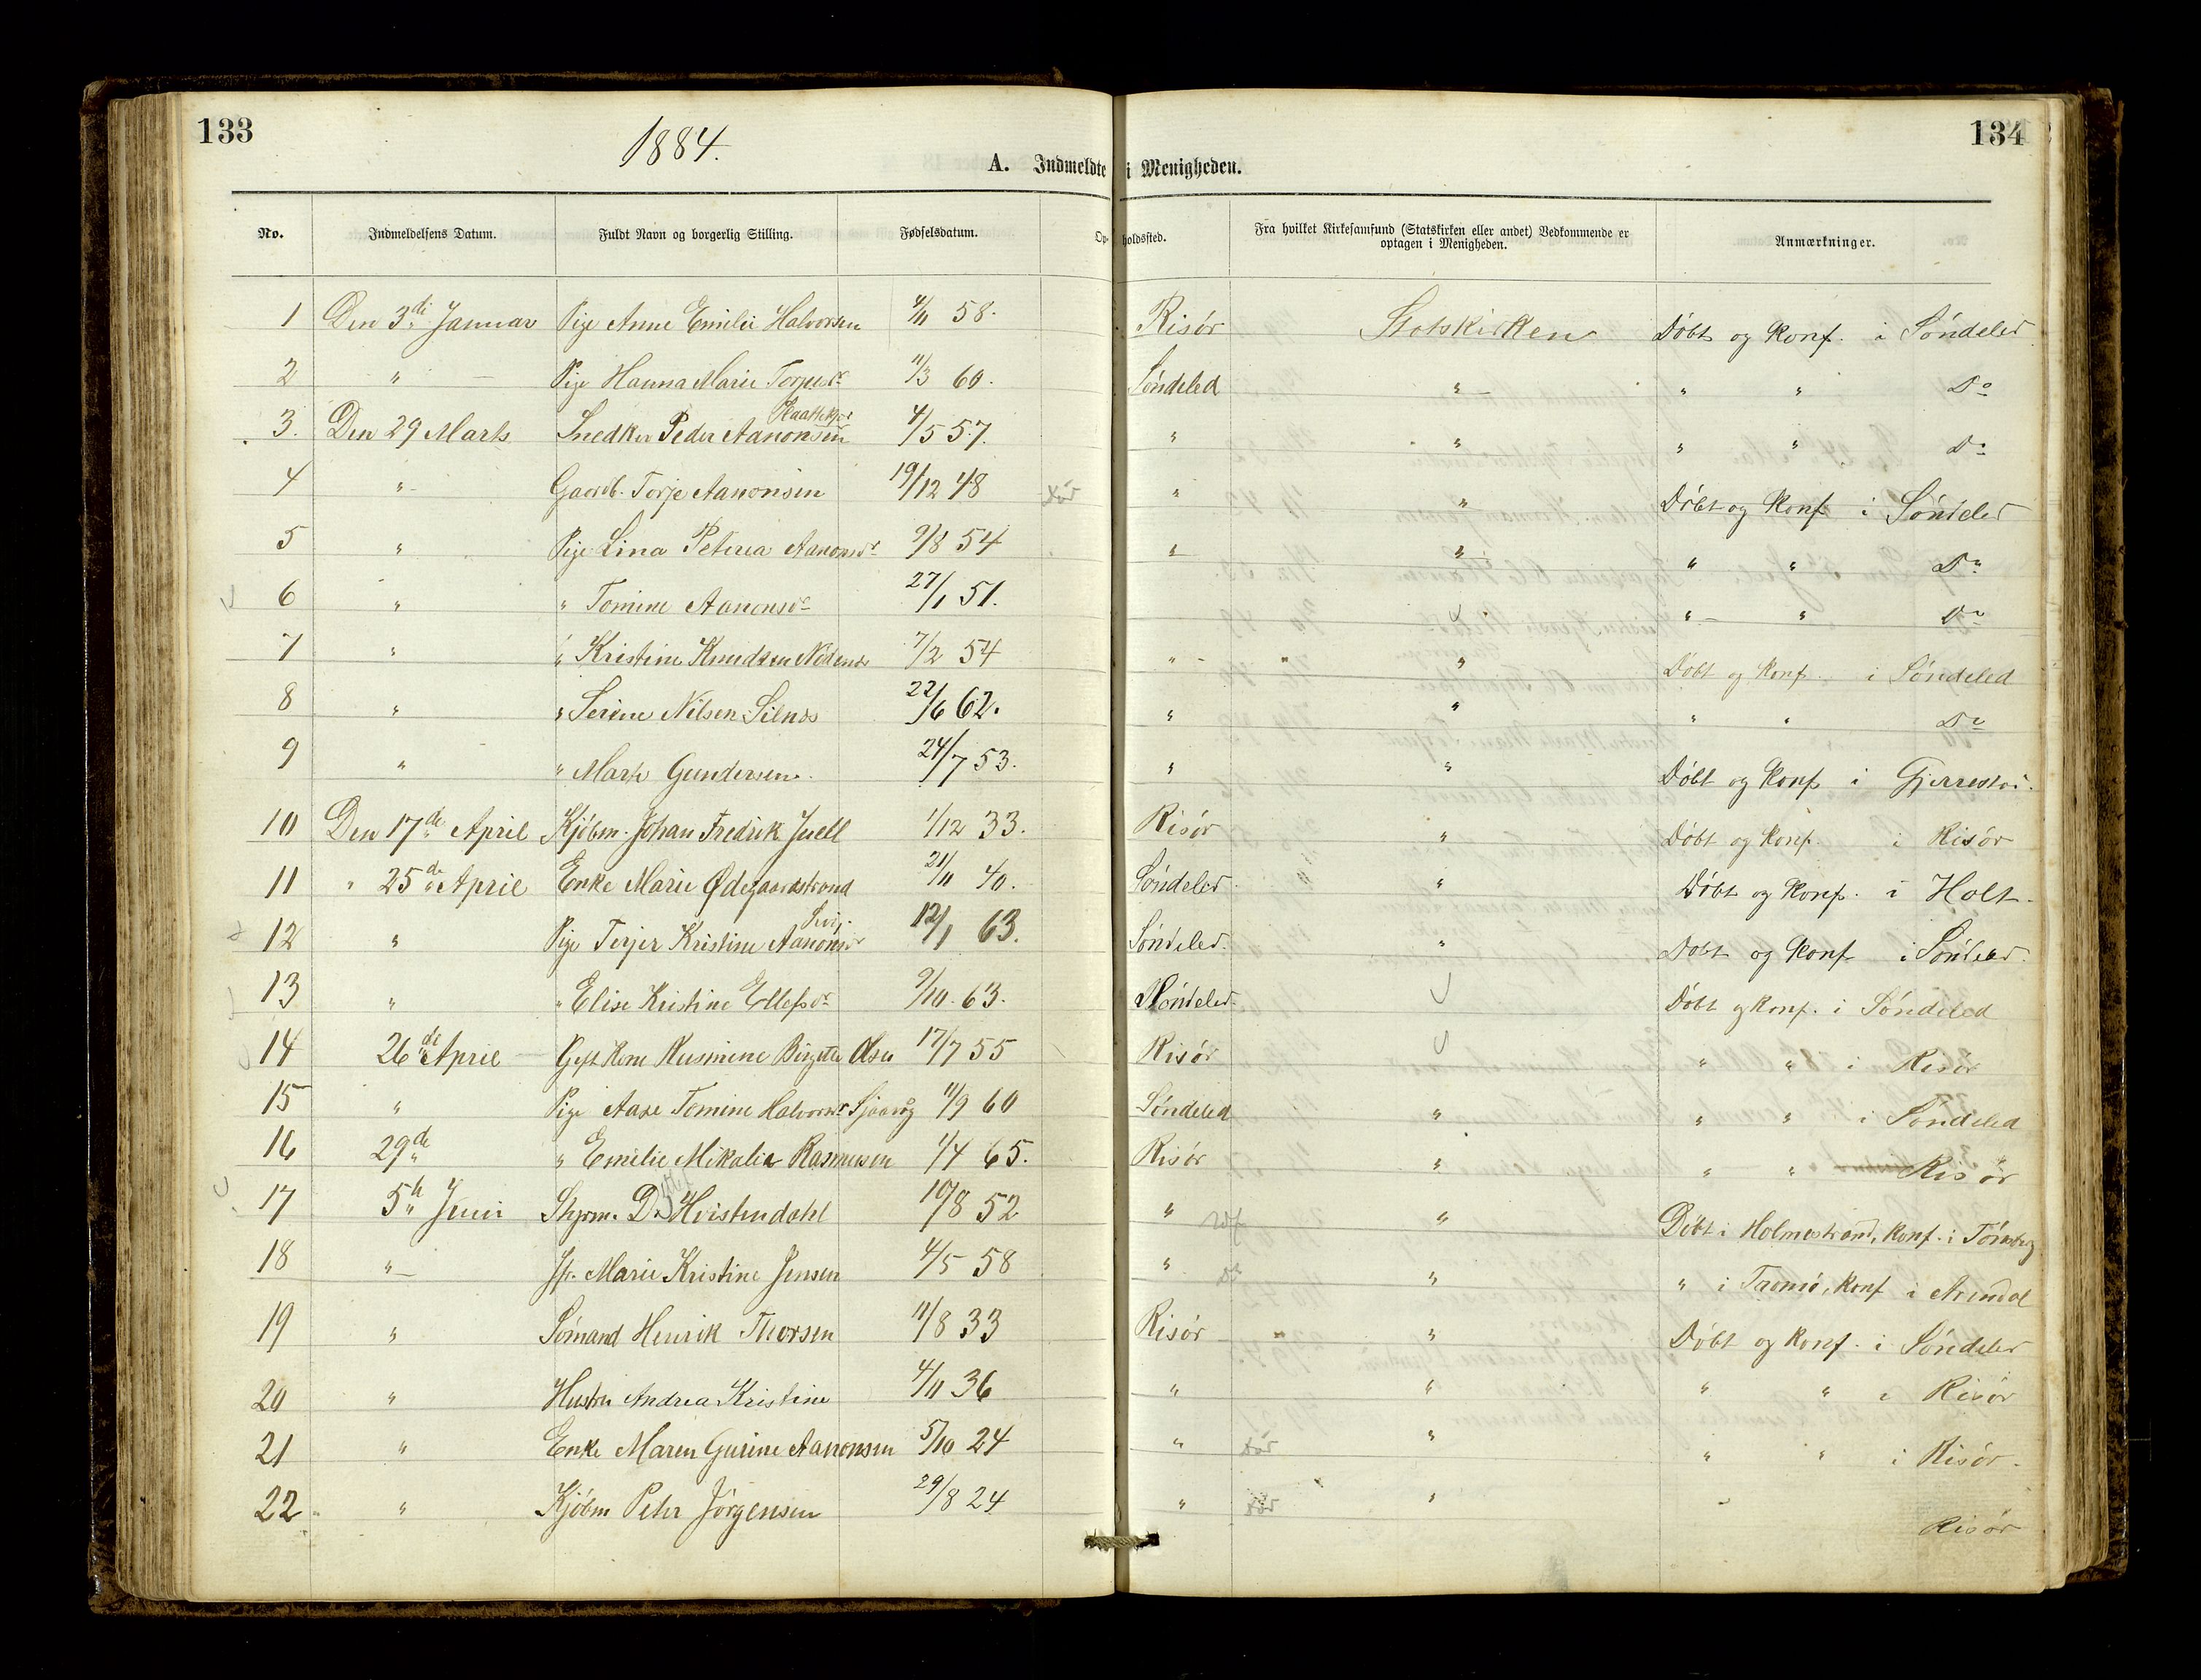 133
134
1884.
A. Indmeldte i Menigheden.
No. Indmeldelsens Datum. Fuldt Navn og borgerlig Stilling. Fødselsdatum. Opholdssted. Fra hvilket Kirkesamfund (Statskirken eller andet) Vedkommende er optagen i Menigheden. Anmærkninger.
1 Den 3di Januar Pige Anne Emilie Halvorsen 4/11 58. Risör Statskirken Döbt og Konf. i Söndeled
2 " Pige Hanna Marie 11/3 60. Söndeled " " " Do
3. Den 29 Marts Snedker Peder Aanonsen 4/5 57. " " " " Do
4 " Gaardb. Torje Aanonsen 19/12 48 död " " Döbt og Konf i Söndeled
5 " Pige Lina Petrea Aanonsdr 9/8 54 " " " " Do
6 " " Tomine Aanonsdr 27/1 51. " " Do
7 " " Kristine Knudsen 7/2 54 " " Döbt og Konf. i Söndeled
8 " " Serine Nilsen 22/6 62. " " " " Do
9 " " Gundersen. 24/7 53. " " Döbt og Konf i Gjerrestad.
10 Den 17de April Kjöbm. Johan Fredrik Juell 1/12 33. Risör " Döbt og Konf. i Risör
11 " 25de April Enke Marie Ødegaardstrand 21/11 40. Söndeled " Döbt og Konf. i Holt.
12 " Pige Terjer Kristine Aanonsdr 12/1 63. Söndeled. " Döbt og Konf i Söndeled.
13 " " Elise Kristine Ellefsdr 9/10. 63. Söndeled. Döbt og Konf. i Söndeled
14 26de April Gift Kone Rusmine Birgitte Olsen 17/7 55 Risör " " i Risör
15 " Pige Aase Tomine Halvorsdr 11/9 60 Söndeled " " " i Söndeled
16 29de " Emilie Mikalia Rasmusen 1/4 65. Risör " " " Risör
17 5te Juni Styrm. D. Hvistendahl 19/8 52 " udf " Döbt i Holmestrand, Konf. i Tönsberg
18 " Jfr. Marie Kristine Jensen 4/5 58 " Do " " i Tromö, Konf i Arendal
19 " Sömand Henrik Thorsen 11/8 33 Risör " Döbt og Konf. i Söndeled
20 " Hustru Andrea Kristine 4/11 36 " " " " i Risör
21 " Enke Maren Gurine Aanonsen 5/10 24 " död " " " i Risör.
22 " Kjöbm Peter Jörgensen 29/8 24 " död " Risör